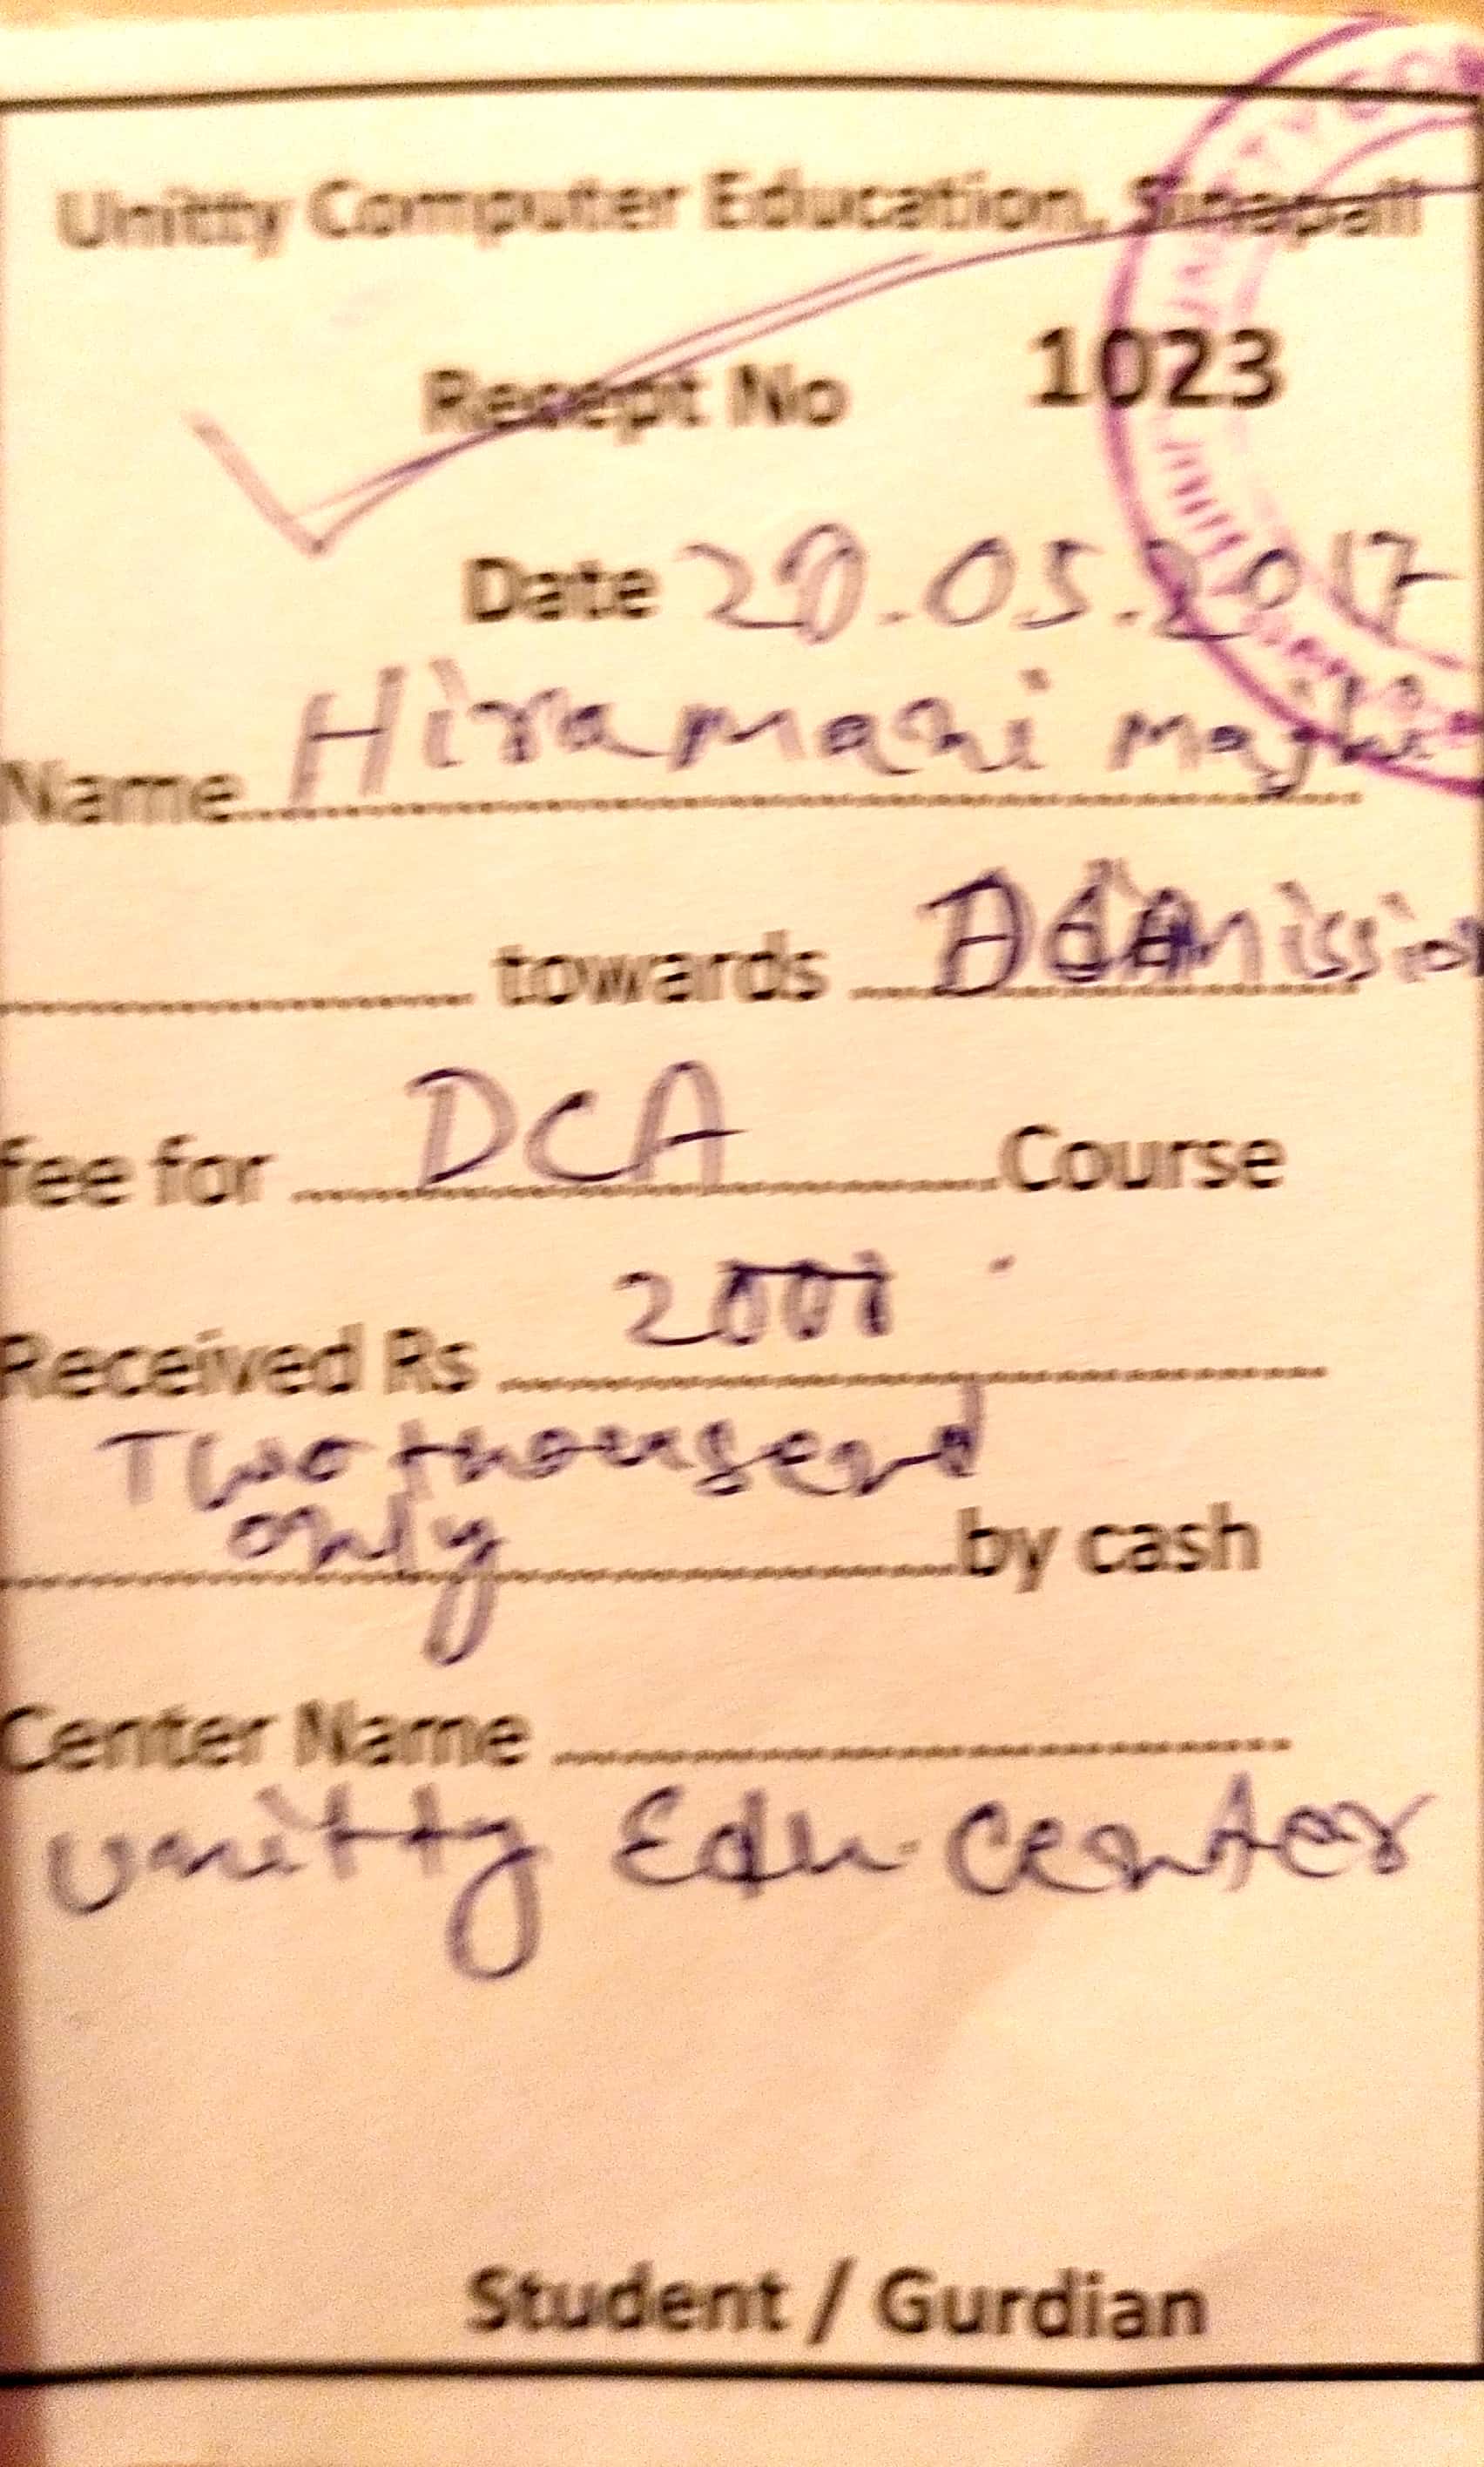 Unitty Computer Education, Sinapali
Receipt No 1023
Date 29.05.2017
Name Hiramani Majhi
towards Admission
fee for DCA Course
Received Rs 2000
Two thousend
only by cash
Center Name
Unitty Edu. Center
Student / Gurdian